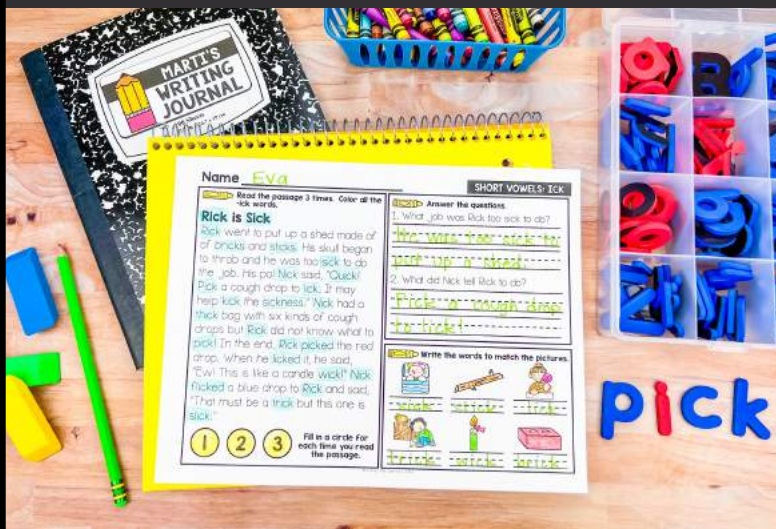 MARTI'S
WRITING
JOURNAL
Name Eva
SHORT VOWELS: ICK
Read the passage 3 times. Color all the
-ick words.
Rick is Sick
Rick went to put up a shed made of
of bricks and sticks. His skull began
to throb and he was too sick to do
the job. His pal Nick said, "Quick!
Pick a cough drop to lick. It may
help kick the sickness." Nick had a
thick bag with six kinds of cough
drops but Rick did not know what to
pick! In the end, Rick picked the red
drop. When he licked it, he said,
"Ew! This is like a candle wick!" Nick
flicked a blue drop to Rick and said,
"That must be a trick but this one is
slick."
1 2 3
Fill in a circle for
each time you read
the passage.
Answer the questions.
1. What job was Rick too sick to do?
He was too sick to
put up a shed.
2. What did Nick tell Rick to do?
Pick a cough drop
to lick!
Write the words to match the pictures.
sick stick lick
trick wick brick
B
pick